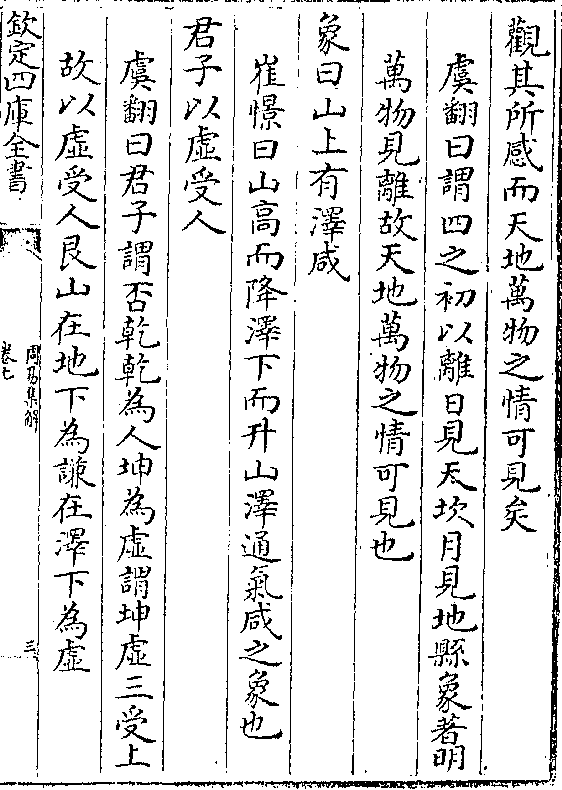 觀其所感而天地萬物之情可見矣
虞翻曰謂四之初以離日見天坎月見地縣象著明
萬物見離故天地萬物之情可見也
象曰山上有澤咸
崔憬曰山高而降澤下而升山澤通氣咸之象也
君子以虛受人
虞翻曰君子謂否乾乾為人坤為虛謂坤虛三受上
故以虛受人艮山在地下為謙在澤下為虛
欽定四庫全書
周易集解
卷七
三